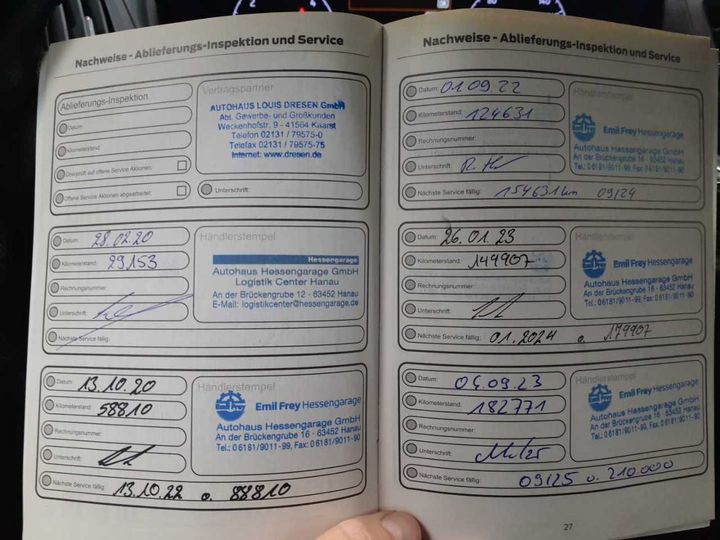 Nachweise - Ablieferungs-Inspektion und Service
Ablieferungs-Inspektion
Datum:
Kilometerstand:
Überprüft auf offene Service Aktionen:
Offene Service Aktionen abgearbeitet:
Vertragspartner
AUTOHAUS LOUIS DRESEN GmbH
Abt. Gewerbe- und Großkunden
Weckenhofstr. 9 - 41564 Kaarst
Telefon 02131 / 79575-0
Telefax 02131 / 79575-75
Internet: www.dresen.de
Unterschrift:
Datum: 28.02.20
Kilometerstand: 29153
Rechnungsnummer:
Unterschrift:
Nächste Service fällig:
Händlerstempel
Hessengarage
Autohaus Hessengarage GmbH
Logistik Center Hanau
An der Brückengrube 12 - 63452 Hanau
E-Mail: logistikcenter@hessengarage.de
Datum: 13.10.20
Kilometerstand: 58810
Rechnungsnummer:
Unterschrift:
Nächste Service fällig: 13.10.22 o. 88810
Händlerstempel
Emil Frey Hessengarage
Autohaus Hessengarage GmbH
An der Brückengrube 16 - 63452 Hanau
Tel.: 06181/9011-99, Fax: 06181/9011-90
Nachweise - Ablieferungs-Inspektion und Service
Datum: 01.09.22
Kilometerstand: 124631
Rechnungsnummer:
Unterschrift:
Nächste Service fällig: 154631km 09/24
Händlerstempel
Emil Frey Hessengarage
Autohaus Hessengarage GmbH
An der Brückengrube 16 - 63452 Hanau
Tel.: 06181/9011-99, Fax: 06181/9011-90
Datum: 26.01.23
Kilometerstand: 149907
Rechnungsnummer:
Unterschrift:
Nächste Service fällig: 01.2024 o. 179907
Händlerstempel
Emil Frey Hessengarage
Autohaus Hessengarage GmbH
An der Brückengrube 16 - 63452 Hanau
Tel.: 06181/9011-99, Fax: 06181/9011-90
Datum: 04.09.23
Kilometerstand: 182771
Rechnungsnummer:
Unterschrift:
Nächste Service fällig: 09/25 o. 210.000
Händlerstempel
Emil Frey Hessengarage
Autohaus Hessengarage GmbH
An der Brückengrube 16 - 63452 Hanau
Tel.: 06181/9011-99, Fax: 06181/9011-90
27